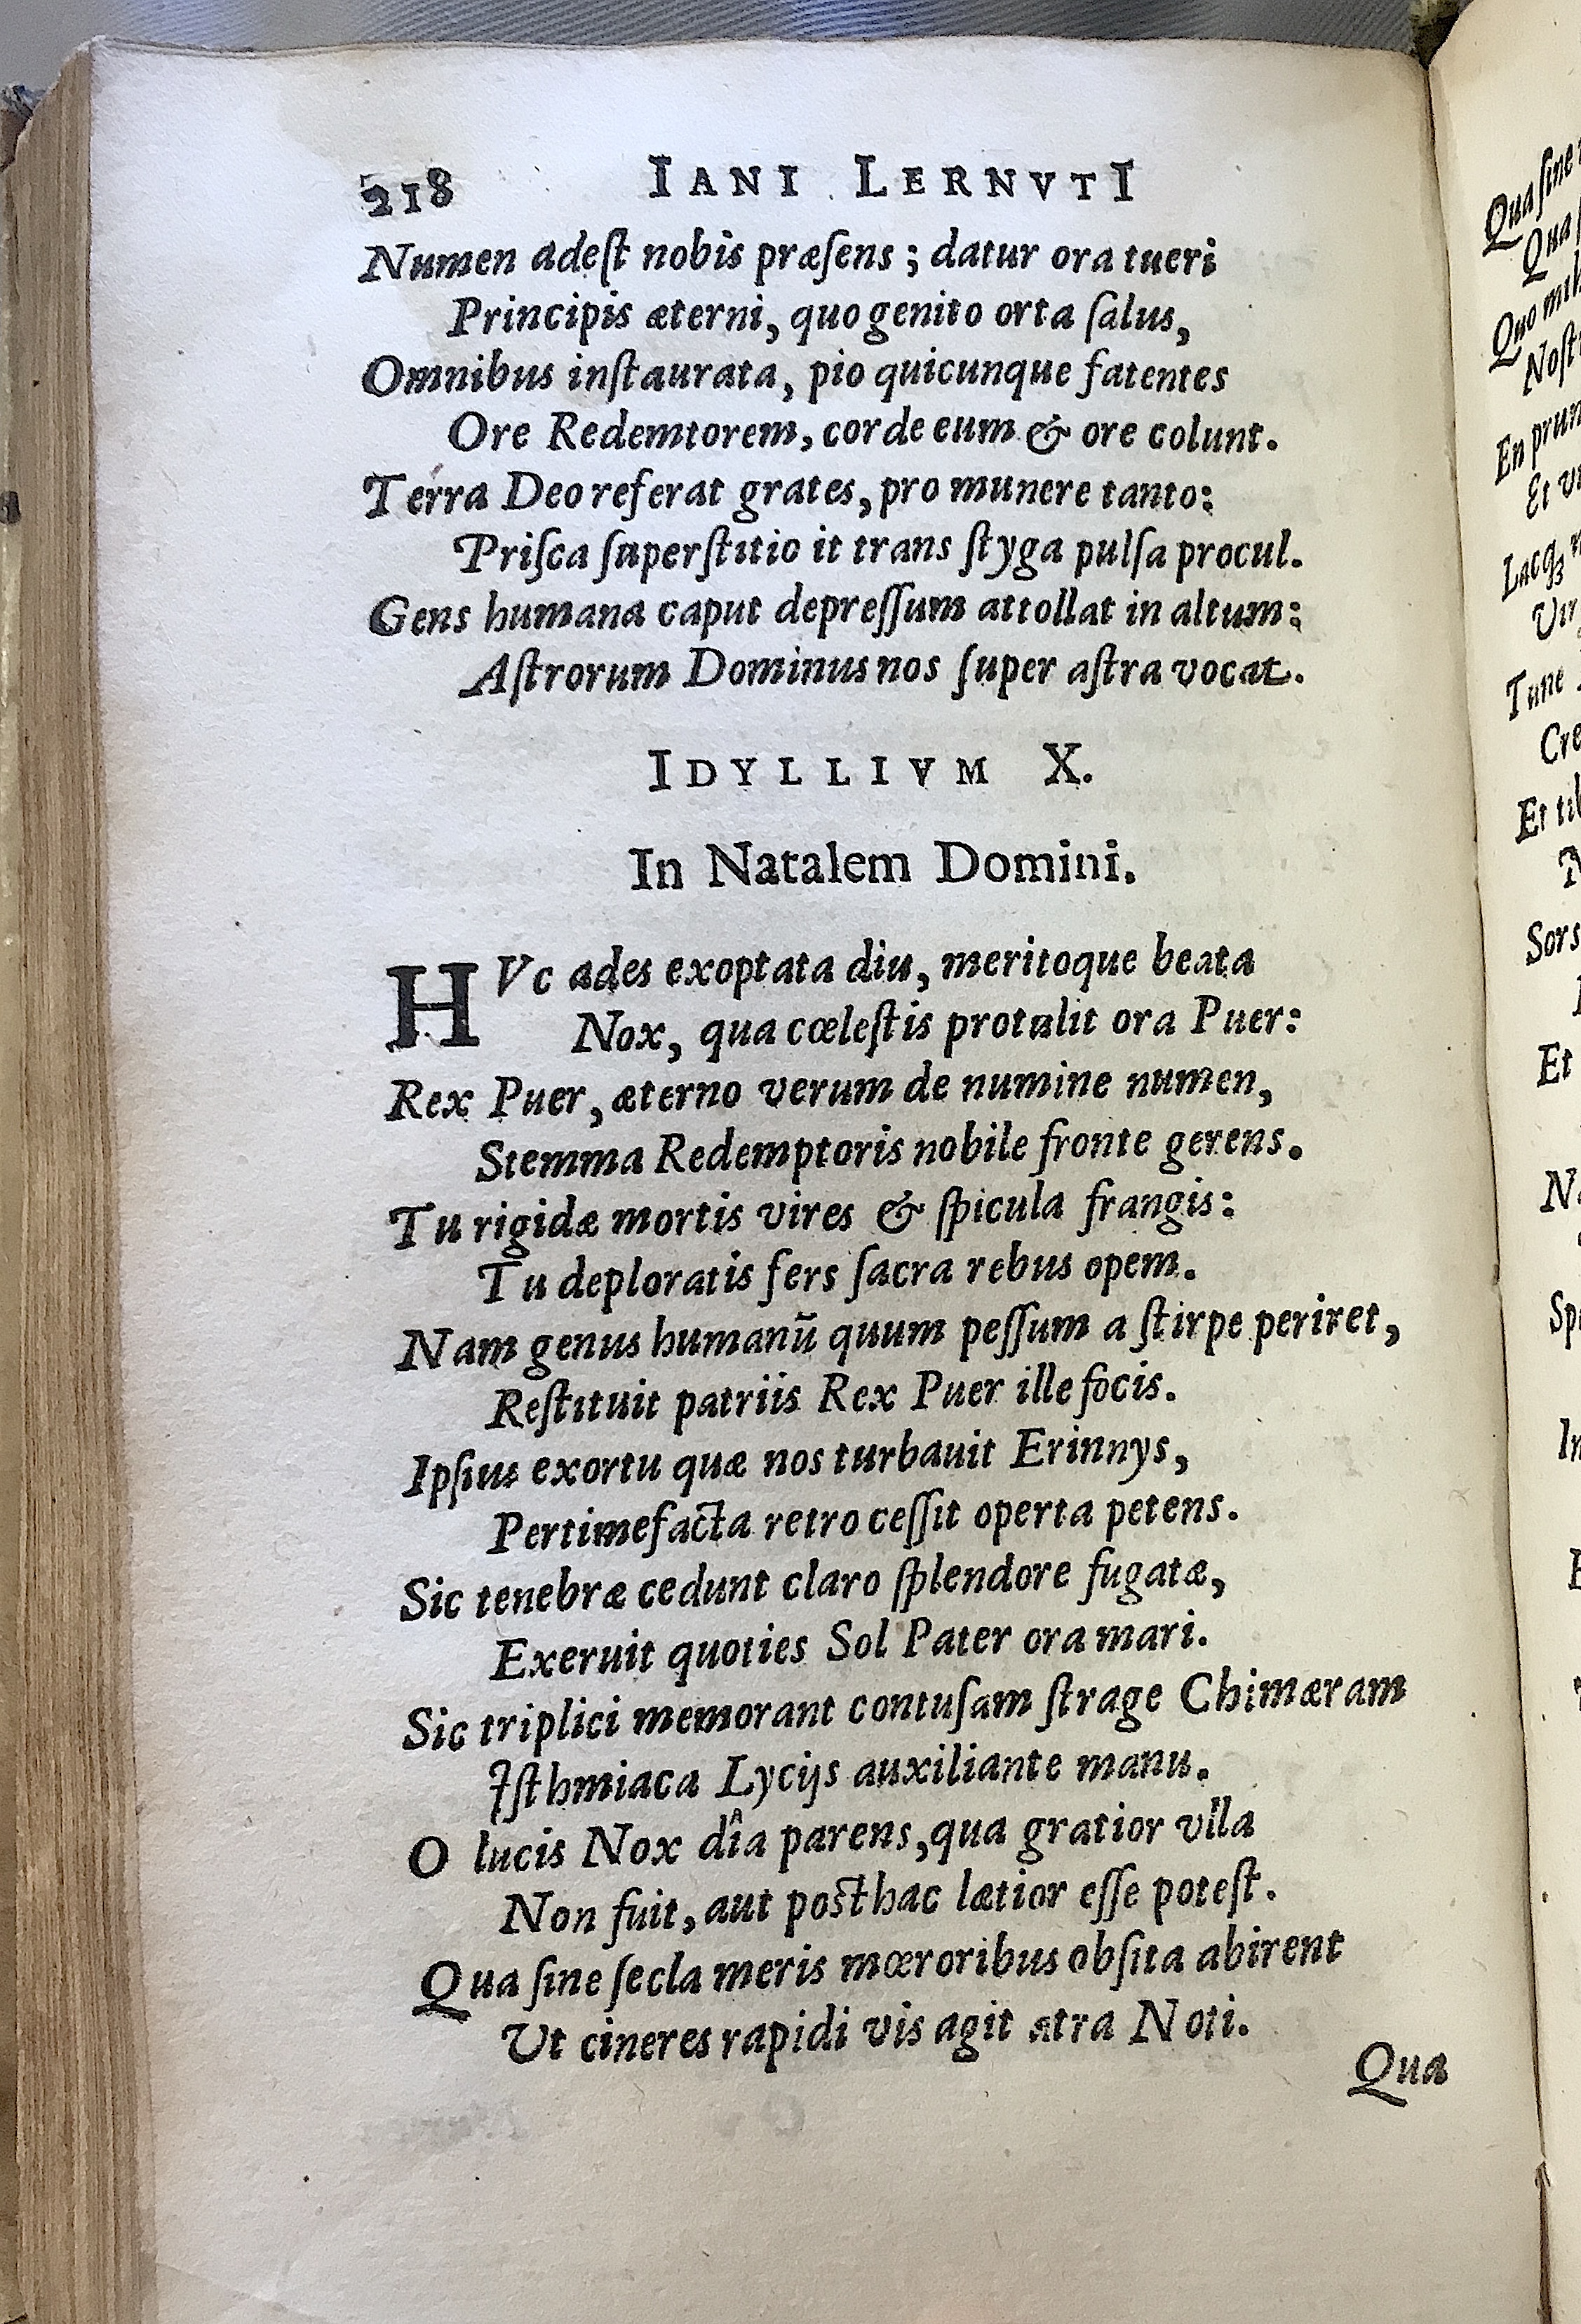 218 IANI LERNVTI
Numen adeſt nobis præſens ; datur ora tueri
Principis æterni, quo genito orta ſalus,
Omnibus inſtaurata, pio quicunque fatentes
Ore Redemtorem, corde eum & ore colunt.
Terra Deo referat grates, pro munere tanto:
Priſca ſuperſtitio it trans ſtyga pulſa procul.
Gens humana caput depreſſum attollat in altum:
Aſtrorum Dominus nos ſuper aſtra vocat.
IDYLLIVM X.
In Natalem Domini.
HVc ades exoptata diu, meritoque beata
Nox, qua cœleſtis protulit ora Puer:
Rex Puer, æterno verum de numine numen,
Stemma Redemptoris nobile fronte gerens.
Tu rigidæ mortis vires & ſpicula frangis:
Tu deploratis fers ſacra rebus opem.
Nam genus humanū quum peſſum a ſtirpe periret,
Reſtituit patriis Rex Puer ille focis.
Ipſius exortu quæ nos turbauit Erinnys,
Pertimefacta retro ceſſit operta petens.
Sic tenebræ cedunt claro ſplendore fugatæ,
Exeruit quoties Sol Pater ora mari.
Sic triplici memorant contuſam ſtrage Chimæram
Iſthmiaca Lycijs auxiliante manu.
O lucis Nox dîa parens, qua gratior vlla
Non fuit, aut poſthac lætior eſſe poteſt.
Qua ſine ſecla meris mœroribus obſita abirent
Ut cineres rapidi vis agit atra Noti.
Qua
Qua ſine
Qua
Quo mih
Noſt
En prun
Et v
Lacq́ꝫ
Vir
Tune
Cre
Et til
N
Sors
Et
Na
Sp
In